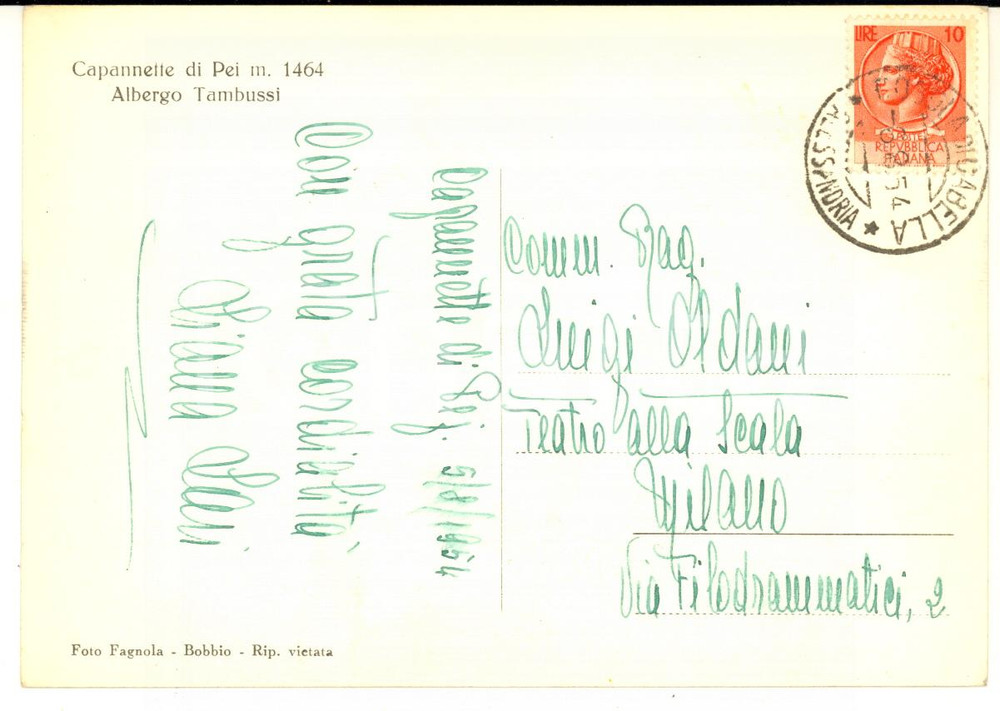 Capannette di Pei m. 1464
Albergo Tambussi
LIRE 10
POSTE
REPVBBLICA
ITALIANA
DI CABELLA
ALESSANDRIA
8 54
Capannette di Pej. 5/8/1954
Con grata cordialità
Comm. Rag.
Luigi Oldani
Teatro alla Scala
Milano
Via Filodrammatici, 2
Foto Fagnola - Bobbio - Rip. vietata